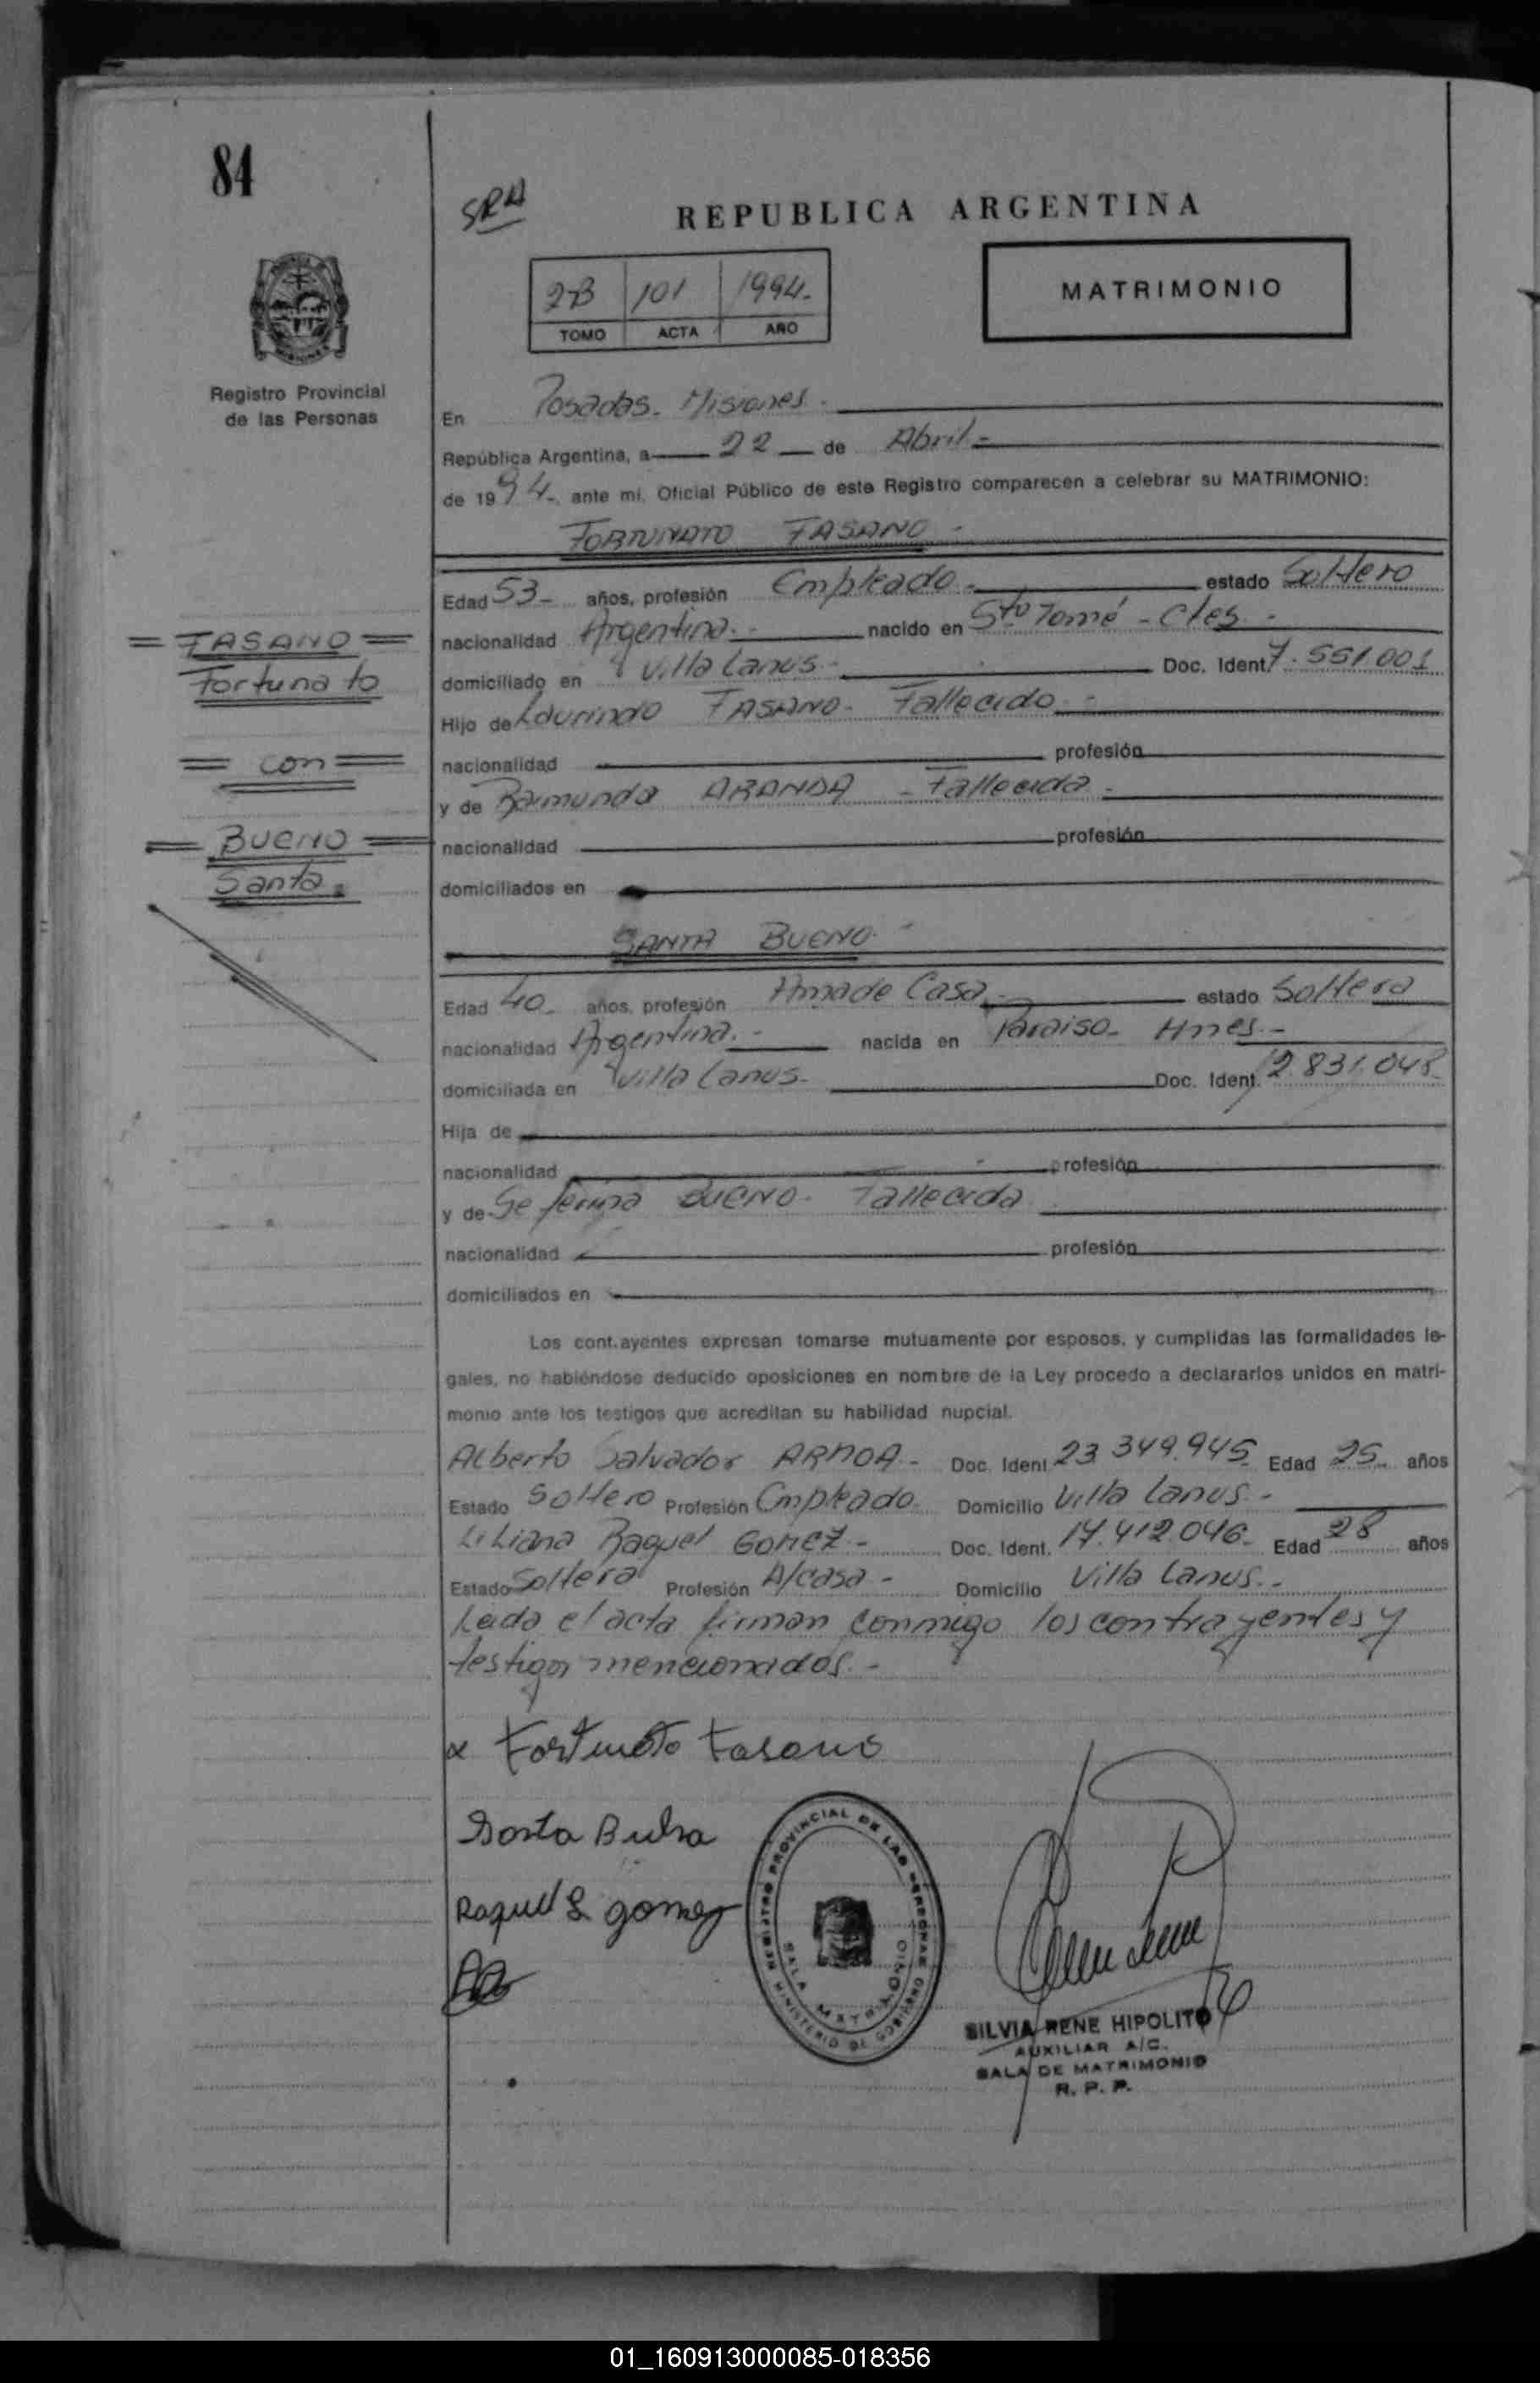 84
SRH
REPUBLICA ARGENTINA
2B 101 1994.-
TOMO ACTA AÑO
MATRIMONIO
Registro Provincial
de las Personas
En Posadas. Misiones.
República Argentina, a 22 de Abril.-
de 1994.- ante mi, Oficial Público de este Registro comparecen a celebrar su MATRIMONIO:
FORTUNATO FASANO.-
Edad 53- años, profesión Empleado.- estado Soltero
nacionalidad Argentina.- nacido en Sto Tomé - Ctes.-
domiciliado en Villa Lanus.- Doc. Ident. 7.551.001
Hijo de Laurindo FASANO.- Fallecido.-
nacionalidad profesión
y de Raimunda ARANDA - Fallecida.-
nacionalidad profesión
domiciliados en
= FASANO =
Fortunato
= con =
= BUENO =
Santa.
SANTA BUENO.-
Edad 40- años, profesión Ama de Casa.- estado Soltera
nacionalidad Argentina.- nacida en Paraiso- Mnes.-
domiciliada en Villa Lanus.- Doc. Ident. 12.831.048-
Hija de
nacionalidad profesión
y de Seferina BUENO.- Fallecida
nacionalidad profesión
domiciliados en
Los cont.ayentes expresan tomarse mutuamente por esposos, y cumplidas las formalidades le-
gales, no habiéndose deducido oposiciones en nombre de la Ley procedo a declararlos unidos en matri-
monio ante los testigos que acreditan su habilidad nupcial.
Alberto Salvador ARMOA.- Doc. Ident 23.349.945 Edad 25- años
Estado Soltero Profesión Empleado. Domicilio Villa Lanus.-
Liliana Raquel GOMEZ.- Doc. Ident. 17.412.046- Edad 28 años
Estado Soltera Profesión A/casa.- Domicilio Villa Lanus.-
Leida el acta firman conmigo los contrayentes y
testigos mencionados.-
x Fortunato Fasano
Raquel L gomez
REGISTRO PROVINCIAL DE LAS PERSONAS
SALA MATRIMONIO
MINISTERIO DE GOBIERNO
SILVIA RENE HIPOLITO
AUXILIAR A/C.
SALA DE MATRIMONIO
R. P. P.
01_160913000085-018356